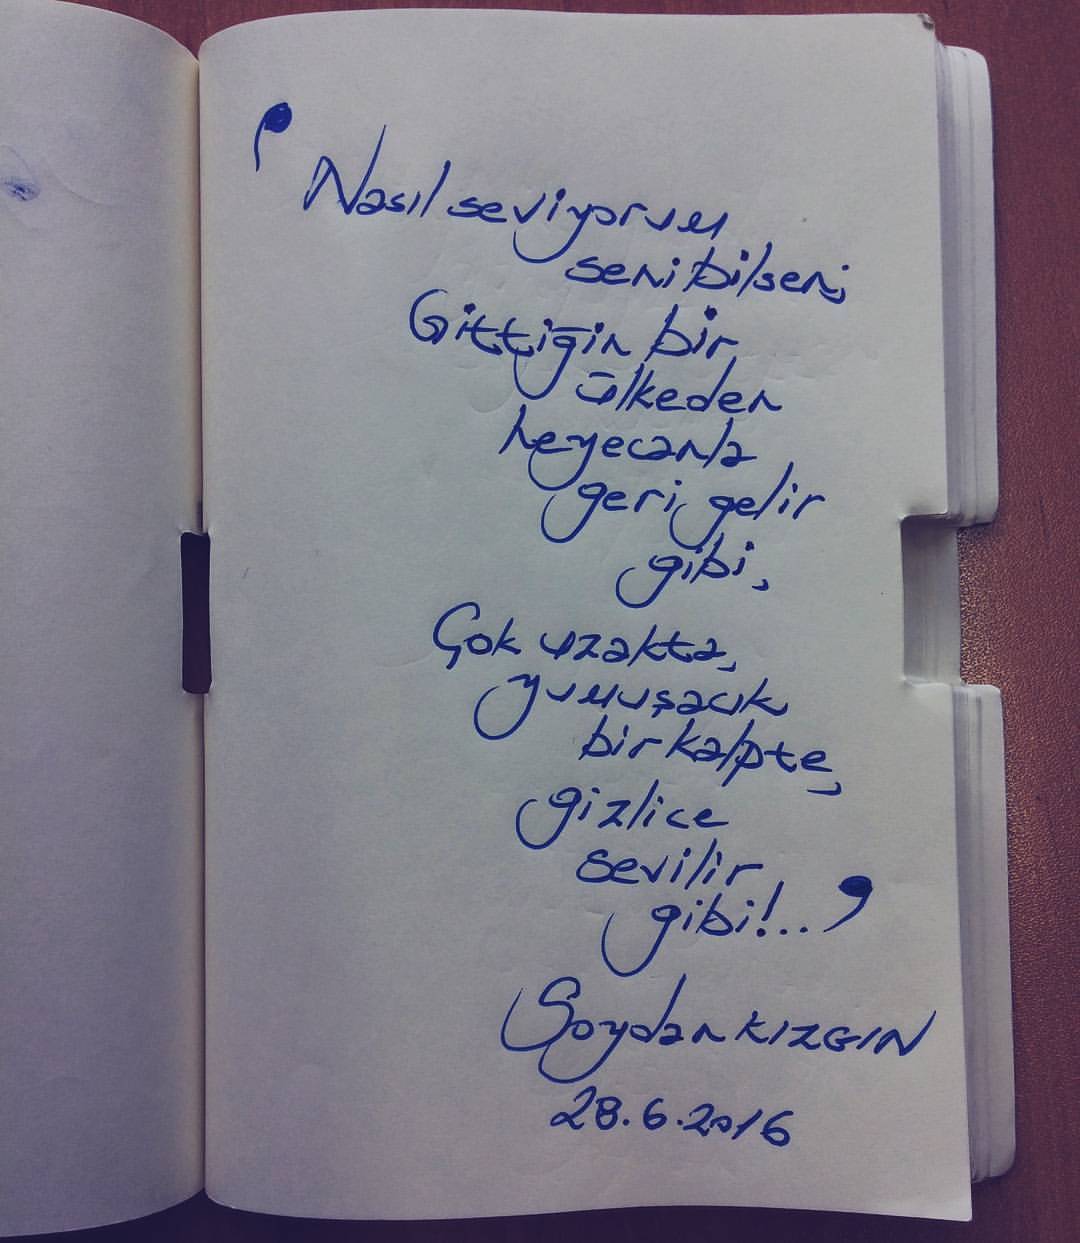 ❜ Nasıl seviyorum
seni bilsen;
Gittiğin bir
ülkeden
heyecanla
geri gelir
gibi,
Çok uzakta,
yumuşacık
bir kalpte,
gizlice
sevilir
gibi!.. ❜
Soydan KIZGIN
28.6.2016